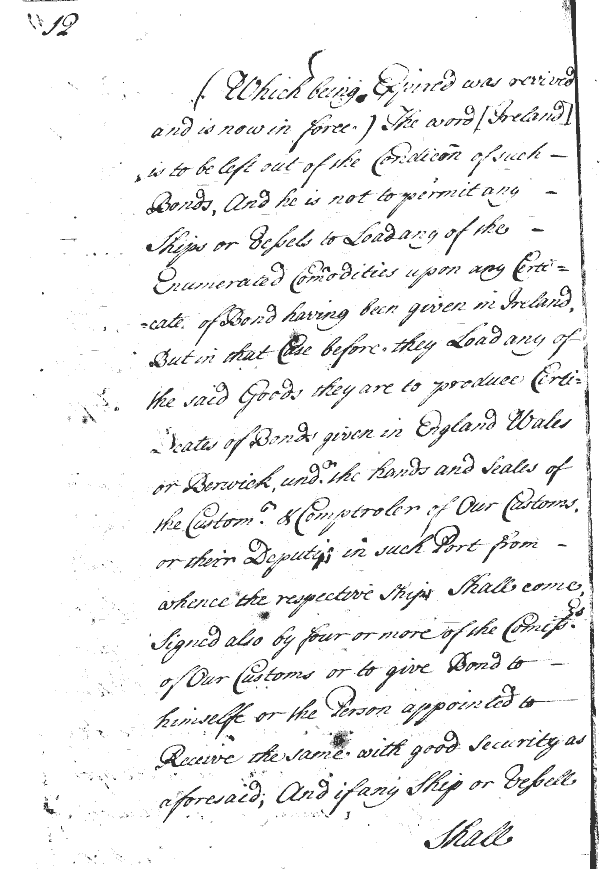 12
(Which being Expired was revived
and is now in force.) The word [Ireland]
is to be left out of the Condicōn of such –
Bonds, And he is not to permit any –
Ships or Vessels to Load any of the –
Enumerated Com̄odities upon any Certi=
=cate of Bond having been given in Ireland,
But in that Case before they Load any of
the said Goods they are to produce Certi=
ficates of Bonds given in England Wales
or Berwick, und.r the hands and Seales of
the Custom.r & Comptroler of Our Customs,
or their Deputys in such Port from –
whence the respective Ships Shall come,
Signed also by four or more of the Comiss.rs
of Our Customs or to give Bond to –
himselfe or the Person appointed to
Receive the same with good Security as
aforesaid; And if any Ship or Vessell
Shall